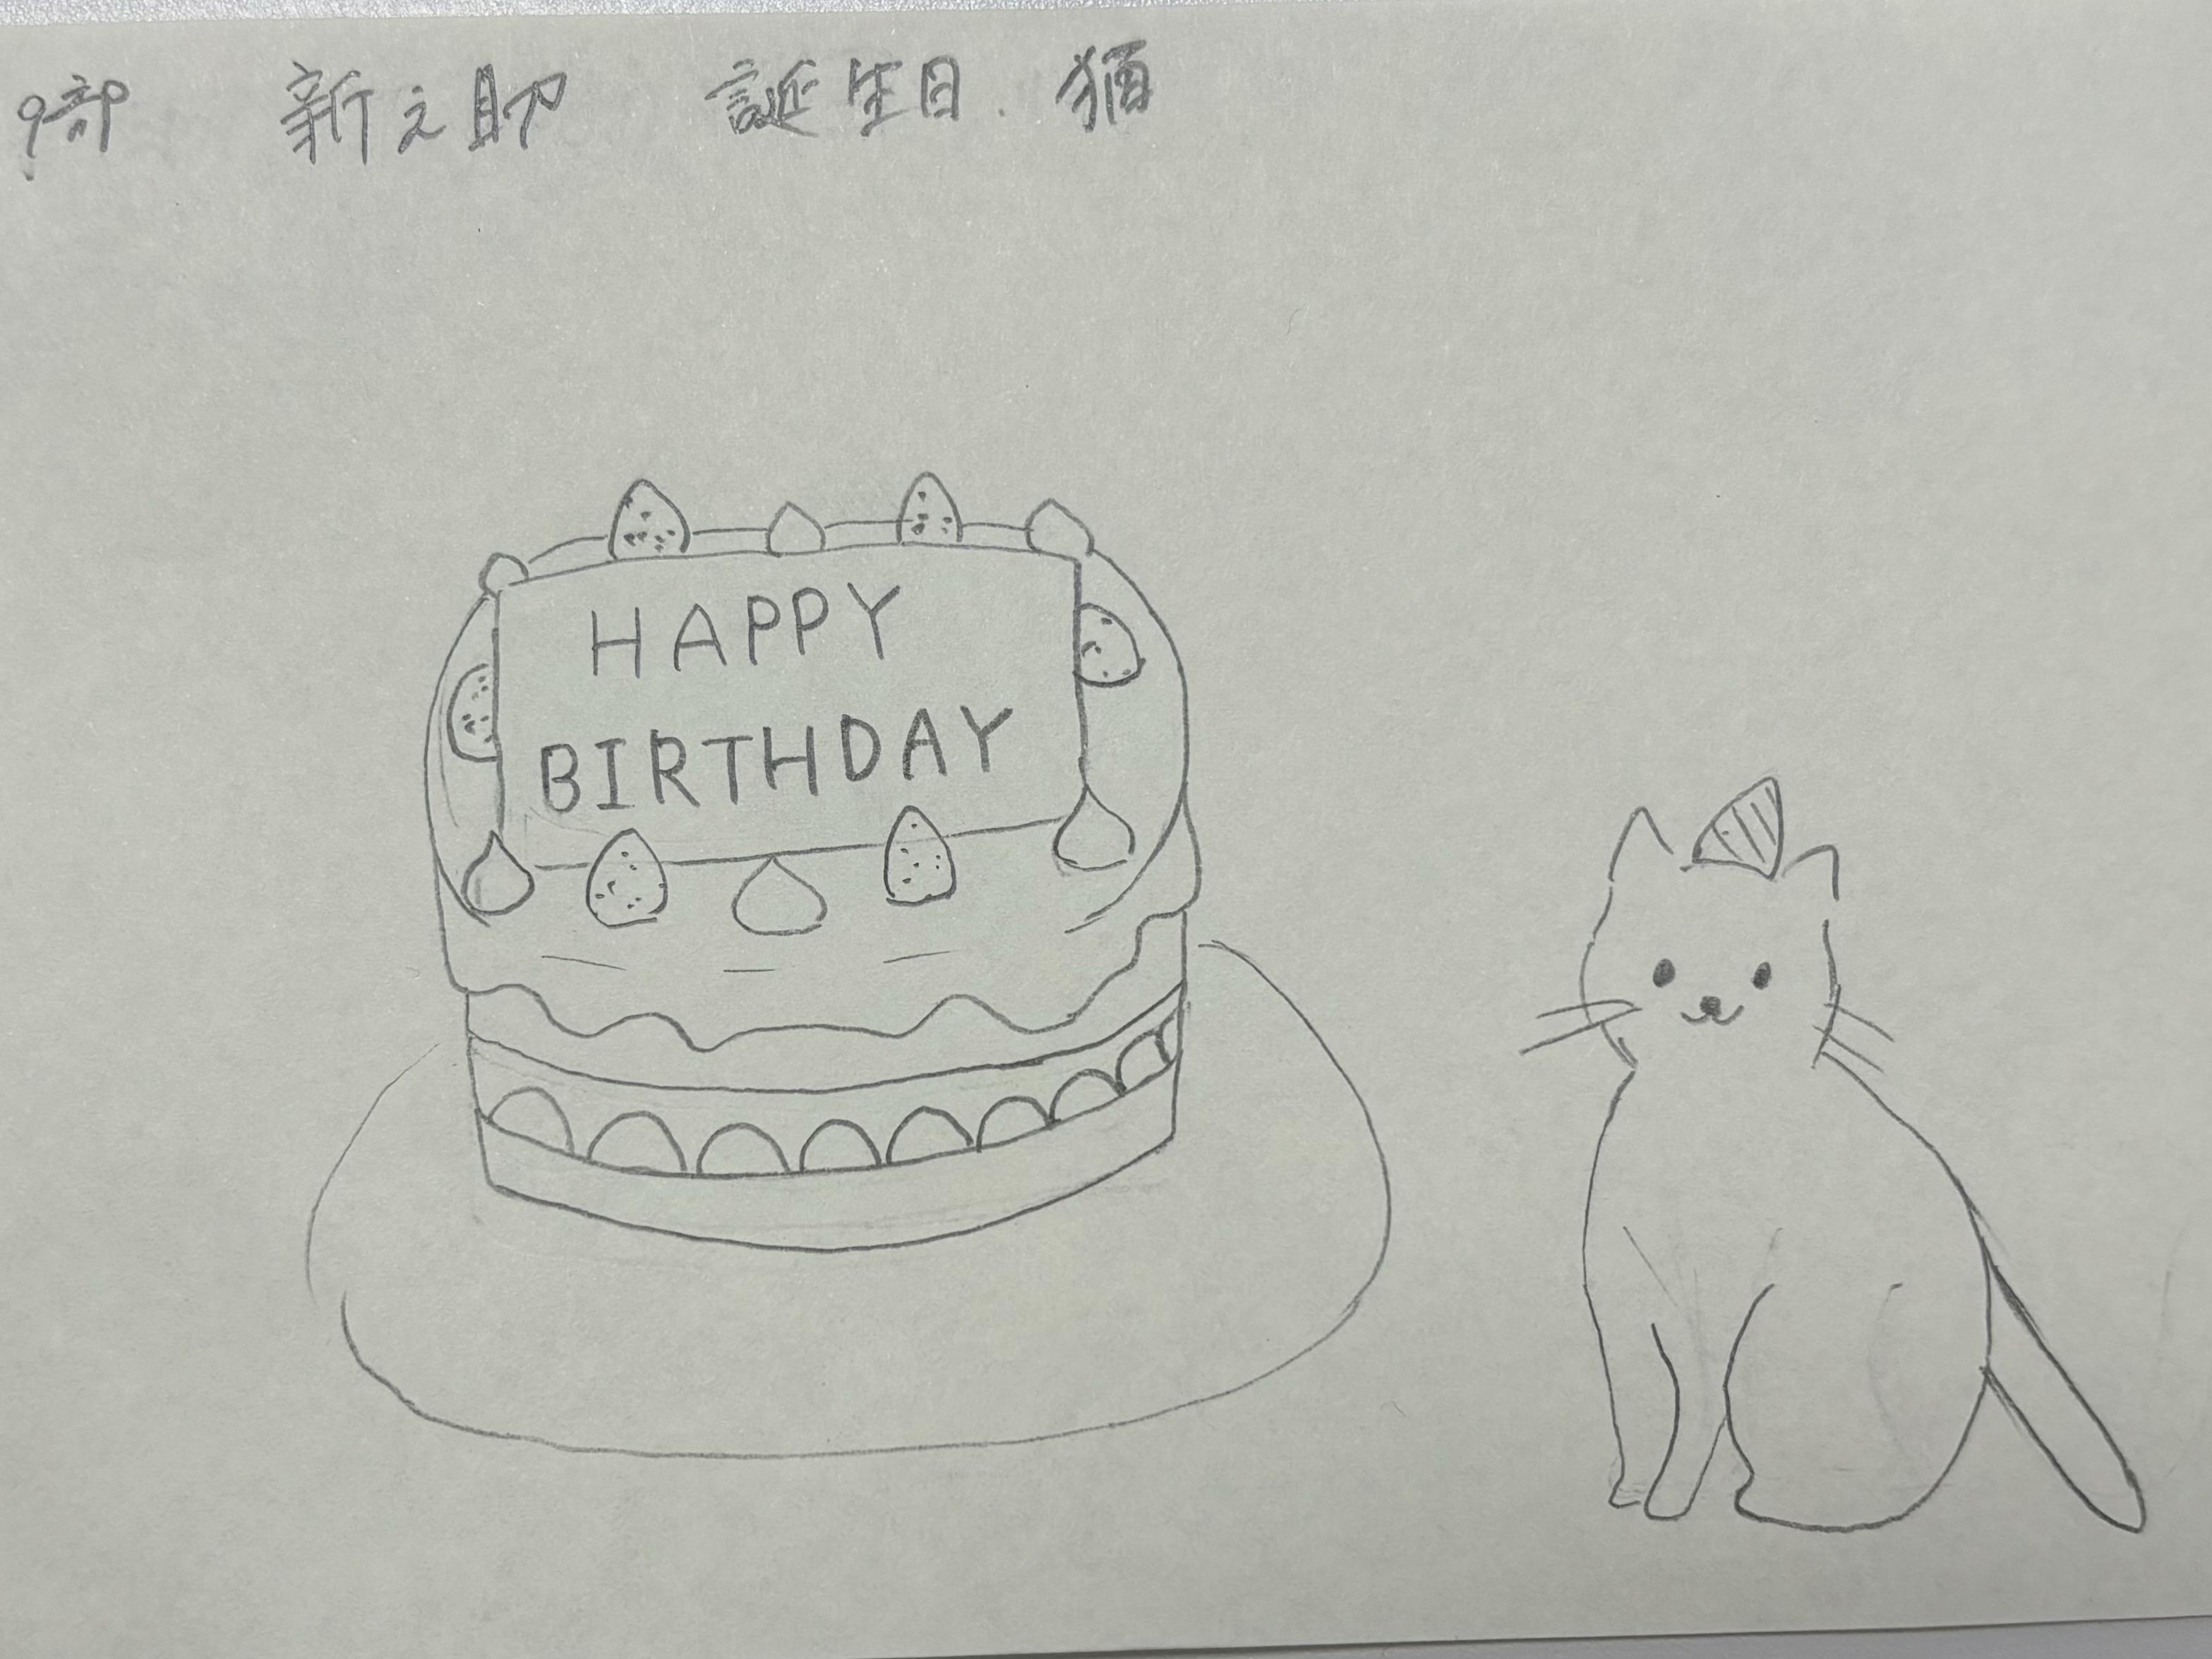 9部 新之助 誕生日. 猫
HAPPY
BIRTHDAY